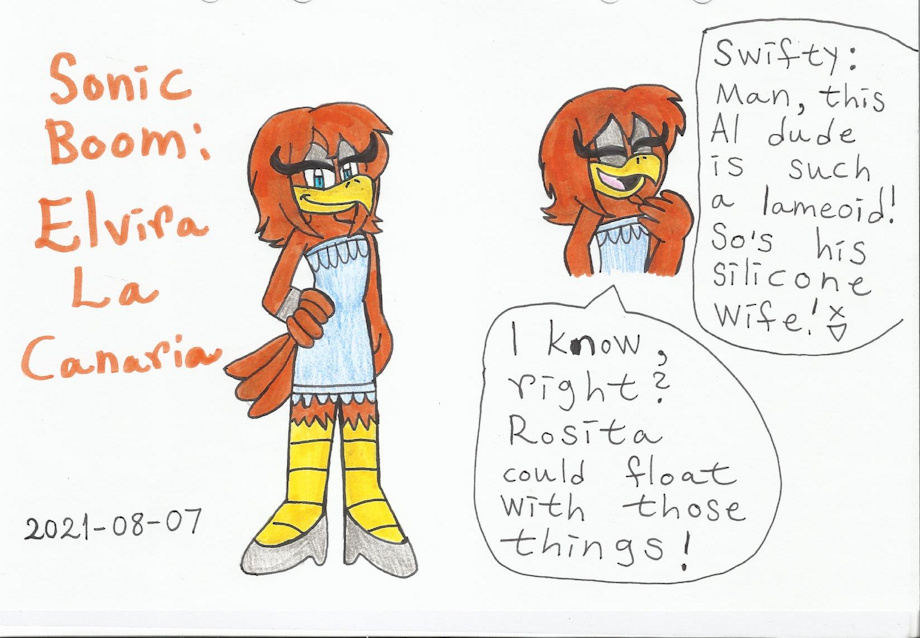 Sonic
Boom:
Elvira
La
Canaria
2021-08-07
Swifty:
Man, this
Al dude
is such
a lameoid!
So's his
silicone
wife!
I know,
right?
Rosita
could float
with those
things!